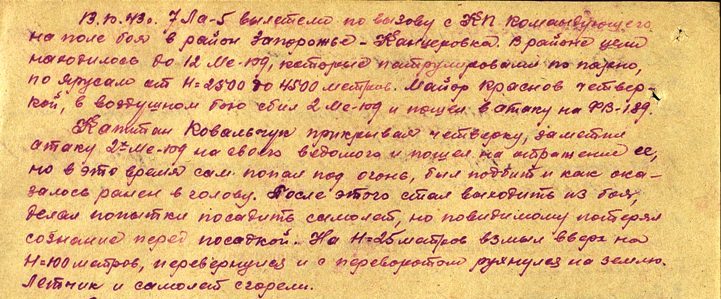 13.10.43г. 7 Ла-5 вылетели по вызову с КП Командующего
на поле боя в район Запорожье - Канцеровка. В районе цели
находилось до 12 Ме-109, которые патрулировали по парно,
по ярусам от Н=2500 до 4500 метров. Майор Краснов четвер-
кой, в воздушном бою сбил 2 Ме-109 и пошел в атаку на ФВ-189.
Капитан Ковальчук прикрывая четверку, заметил
атаку 2х Ме-109 на своего ведомого и пошел на отражение ее,
но в это время сам попал под огонь, был подбит и как ока-
залось ранен в голову. После этого стал выходить из боя,
делал попытки посадить самолет, но повидимому потерял
сознание перед посадкой. На Н=25 метров взмыл вверх на
Н=100 метров, перевернулся и с переворотом рухнулся на землю.
Летчик и самолет сгорели.